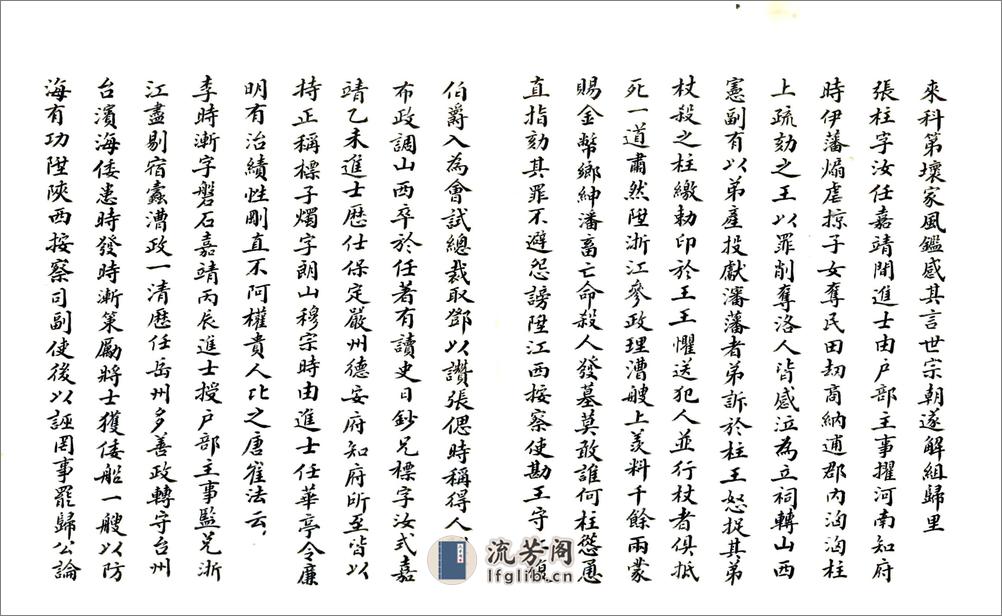 來科第壞家風鑑感其言世宗朝遂解組歸里
張柱字汝任嘉靖閒進士由户部主事擢河南知府
時伊藩煽虐掠子女奪民田刼商納逋郡内洶洶柱
上疏劾之王以罪削奪洛人皆感泣為立祠轉山西
憲副有以弟產投獻瀋藩者弟訴於柱王怒捉其弟
杖殺之柱繳勅印於王王懼送犯人並行杖者俱抵
死一道肅然陞浙江參政理漕艘上羡料千餘兩蒙
賜金幣鄉紳潘畜亡命殺人發墓莫敢誰何柱慫恿
直指劾其罪不避怨謗陞江西按察使勘王守
伯爵入為會試總裁取鄧以讚張偲時稱得人
布政調山西卒於任著有讀史日鈔兄標字汝式嘉
靖乙未進士歷仕保定嚴州德安府知府所至皆以
持正稱標子燭字朗山穆宗時由進士任華亭令廉
明有治績性剛直不阿權貴人比之唐崔法云
李時漸字磐石嘉靖丙辰進士授户部主事監兑浙
江盡剔宿蠹漕政一清歷任岳州多善政轉守台州
台濱海倭患時發時漸策勵將士獲倭船一艘以防
海有功陞陝西按察司副使後以誣罔事罷歸公論
流芳阁
lfglib.cn